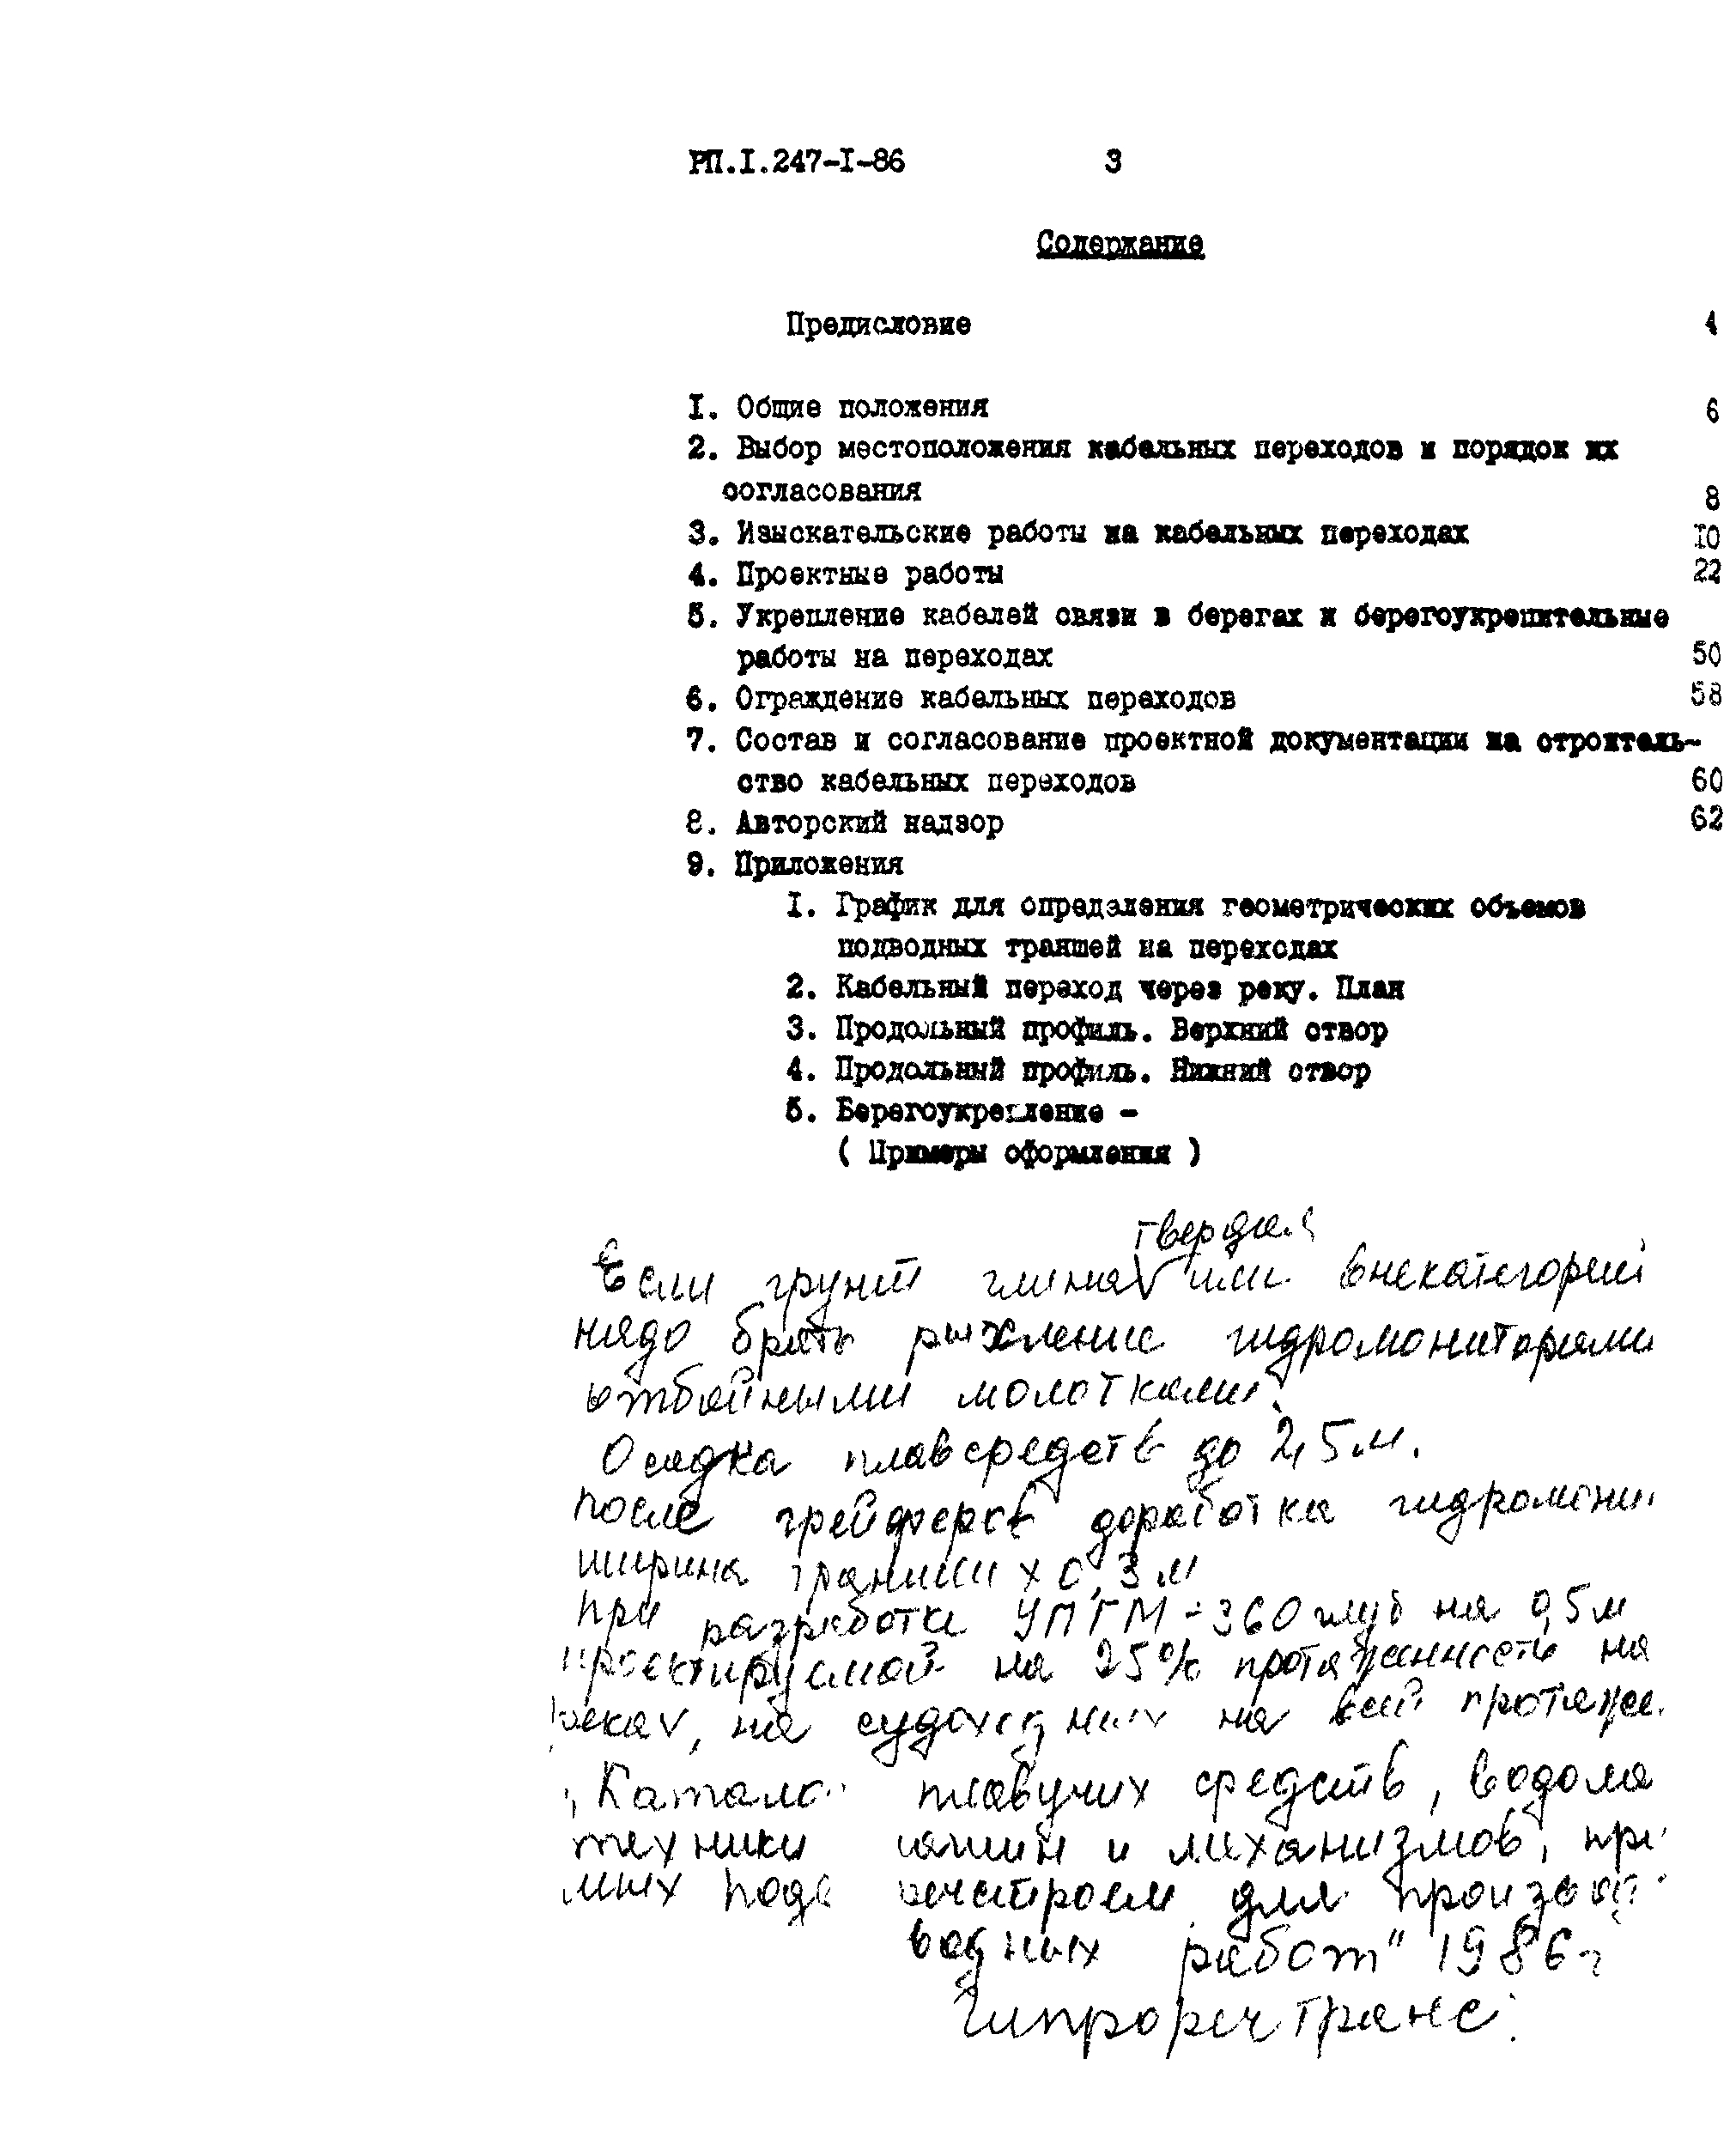 РП.I.247-I-86 3
Содержание
Предисловие 4
I. Общие положения 6
2. Выбор местоположения кабельных переходов и порядок их
согласования 8
3. Изыскательские работы на кабельных переходах 10
4. Проектные работы 22
5. Укрепление кабелей связи в берегах и берегоукрепительные
работы на переходах 50
6. Ограждение кабельных переходов 58
7. Состав и согласование проектной документации на строитель-
ство кабельных переходов 60
8. Авторский надзор 62
9. Приложения
I. График для определения геометрических объемов
подводных траншей на переходах
2. Кабельный переход через реку. План
3. Продольный профиль. Верхний створ
4. Продольный профиль. Нижний створ
5. Берегоукрепление -
( Примеры оформления )
твердая
Если грунт глина V или внекатегорий
надо брать рыхление гидромониторами
отбойными молотками.
Осадка плавсредств до 2,5 м.
после грейферов доработка гидромони
ширина траншеи х 0,3 м
При разработке УПГМ-360 глуб на 0,5 м
проектируемой на 25% протяженность на
реках, на судоходных на всей протяже.
"Катало плавучих средств, водола
техники машин и механизмов, при
мых Подв речстроем для производ
водных работ" 1986 г
Гипроречтранс.